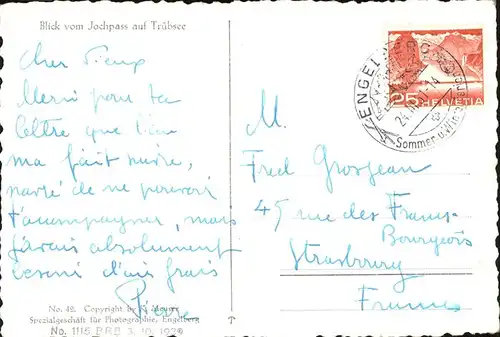 Blick vom Jochpass auf Trübsee
Cher Vieux
Merci pour ta
lettre que l'on
m'a fait suivre,
navré de ne pouvoir
t'accompagner, mais
j'avais absolument
besoin d'air frais
Pierre
No. 42. Copyright by K. Meuser
Spezialgeschäft für Photographie, Engelberg
No. 1115 BRB 3. 10. 1939
ENGELBERG
Sommer u. Winter
25 HELVETIA
M.
Fred Grosjean
45 rue des Francs-
Bourgeois
Strasbourg
France